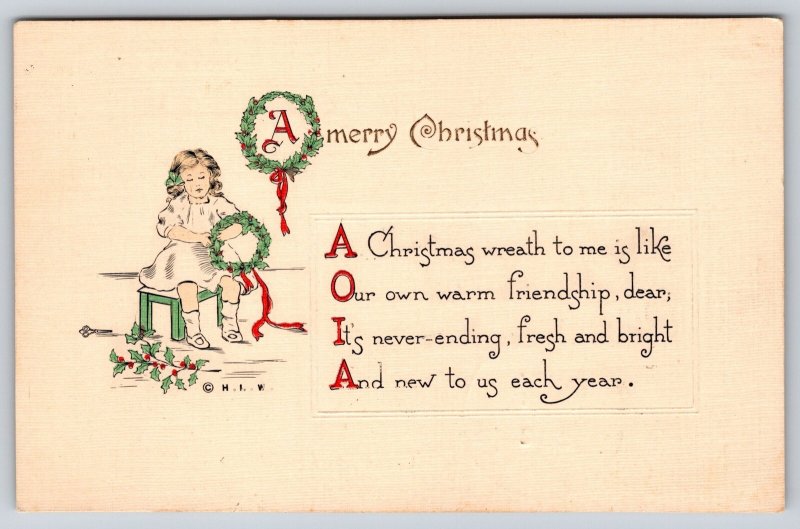 A merry Christmas
A Christmas wreath to me is like
Our own warm friendship, dear;
It's never-ending, fresh and bright
And new to us each year.
© H. I. W.